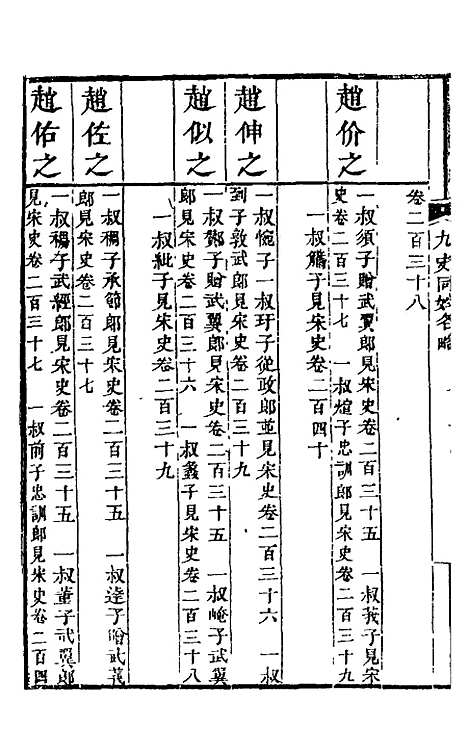 九史同姓名略
卷二百三十八
趙价之
一叔須子贈武翼郎見宋史卷二百三十五　一叔莪子見宋
史卷二百三十七　一叔煊子忠訓郎見宋史卷二百三十九
一叔臢子見宋史卷二百四十
趙伸之
一叔惋子一叔玗子從政郎並見宋史卷二百三十六　一叔
到子敦武郎見宋史卷二百三十九
趙似之
一叔鄧子贈武翼郎見宋史卷二百三十五　一叔崦子武翼
郎見宋史卷二百三十六　一叔蠡子見宋史卷二百三十八
一叔紪子見宋史卷二百三十九
趙佐之
一叔禤子承節郎見宋史卷二百三十五　一叔逹子贈武義
郎見宋史卷二百三十七
趙佑之
一叔禤子武經郎見宋史卷二百三十五　一叔董子武翼郎
見宋史卷二百三十七　一叔前子忠訓郎見宋史卷二百四